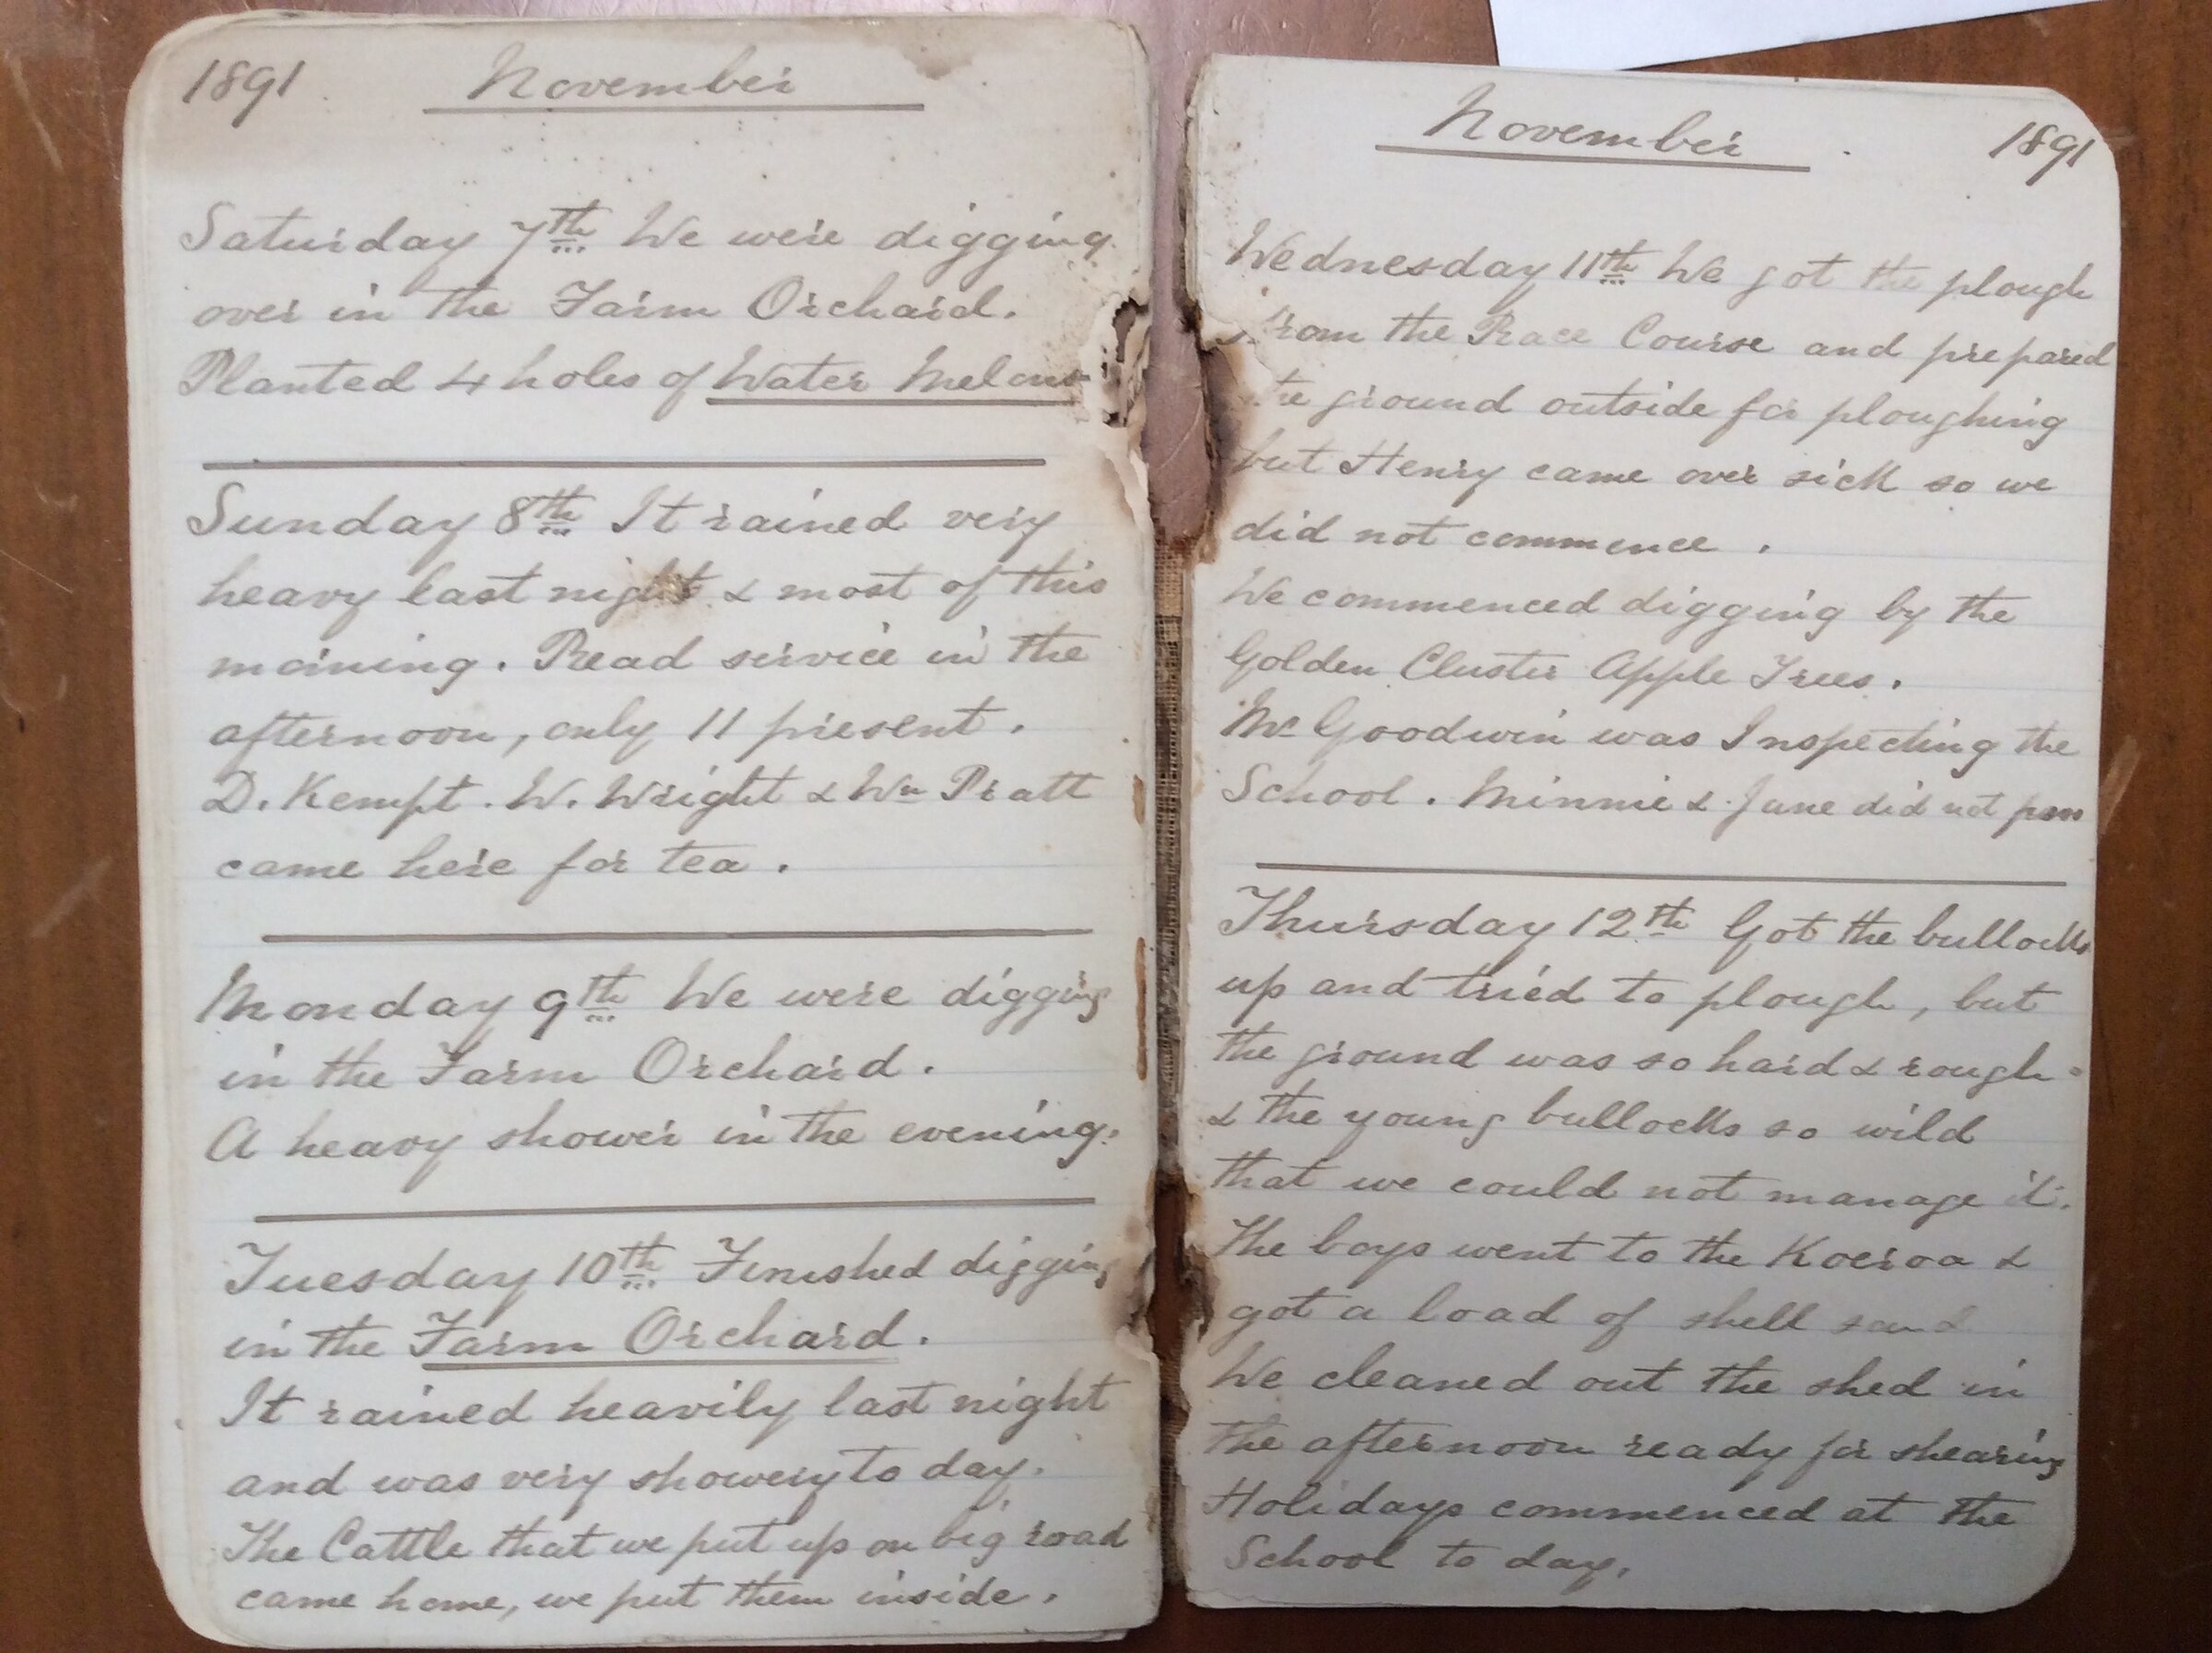 1891 November
Saturday 7th We were digging
over in the Farm Orchard.
Planted 4 holes of Water Melons
Sunday 8th It rained very
heavy last night & most of this
morning. Read service in the
afternoon, only 11 present.
D. Kempt. W. Wright & Wm Pratt
came here for tea.
Monday 9th We were digging
in the Farm Orchard.
A heavy shower in the evening.
Tuesday 10th Finished digging
in the Farm Orchard.
It rained heavily last night
and was very showery to day.
The Cattle that we put up on big road
came home, we put them inside.
November 1891
Wednesday 11th We got the plough
from the Race Course and prepared
the ground outside for ploughing
but Henry came over sick so we
did not commence.
We commenced digging by the
Golden Cluster Apple Trees.
Mr Goodwin was Inspecting the
School. Minnie & Jane did not pass
Thursday 12th Got the bullocks
up and tried to plough, but
the ground was so hard & rough
& the young bullocks so wild
that we could not manage it.
The boys went to the Koeroa &
got a load of shell sand
We cleaned out the shed in
the afternoon ready for shearing
Holidays commenced at the
School to day.